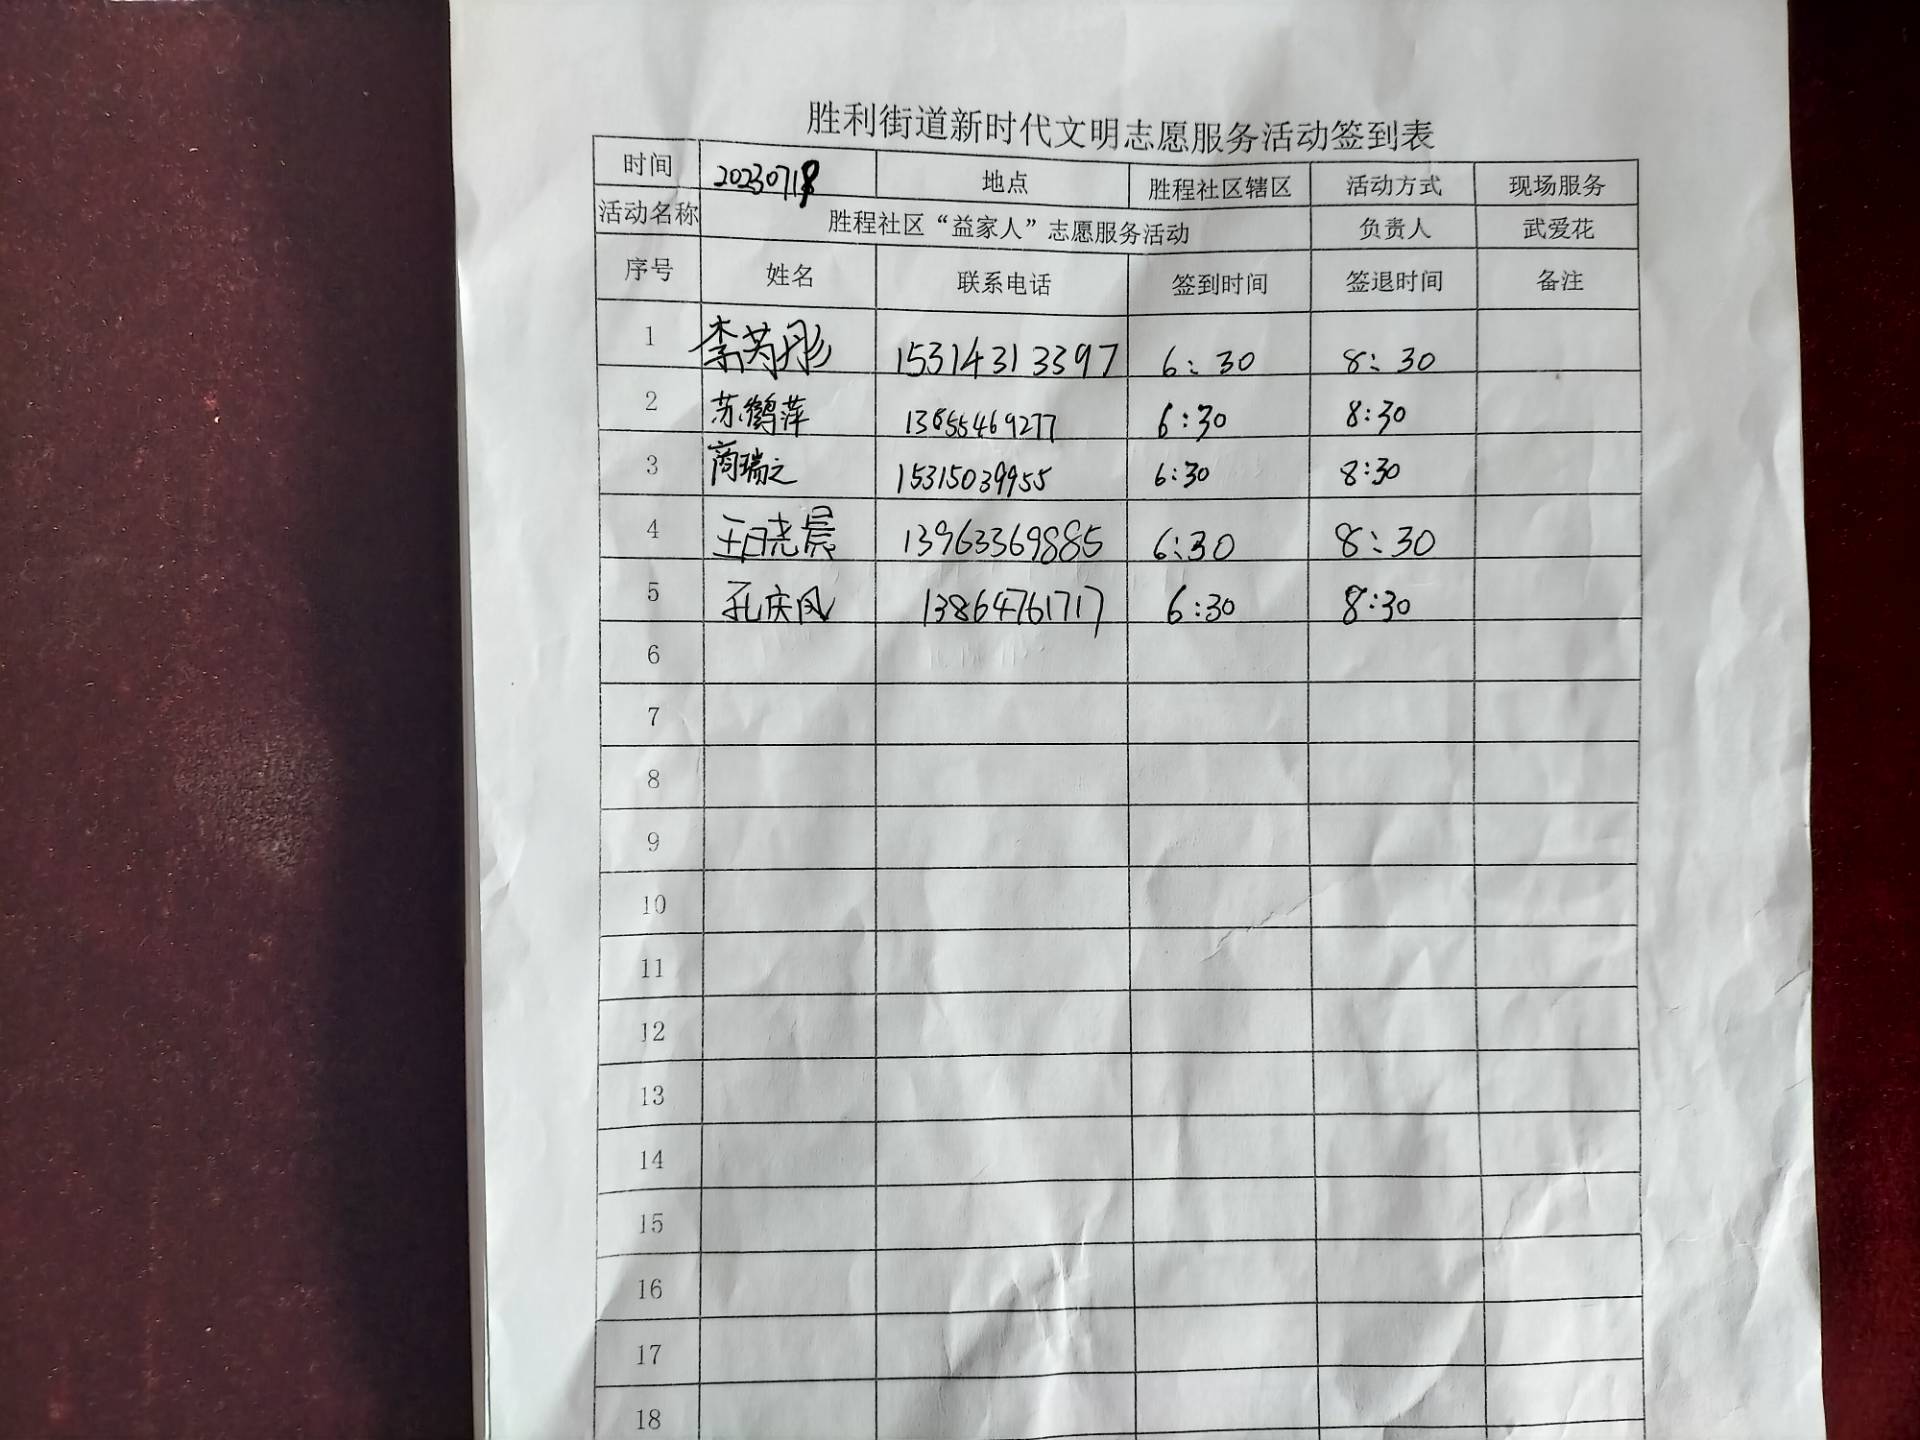 胜利街道新时代文明志愿服务活动签到表
时间 20230718 地点 胜程社区辖区 活动方式 现场服务
活动名称 胜程社区“益家人”志愿服务活动 负责人 武爱花
序号 姓名 联系电话 签到时间 签退时间 备注
1 李芮彤 15314313397 6:30 8:30
2 苏鹤萍 13655469277 6:30 8:30
3 商瑞之 15315039955 6:30 8:30
4 王晓晨 13963369885 6:30 8:30
5 孔庆风 13864761717 6:30 8:30
6
7
8
9
10
11
12
13
14
15
16
17
18